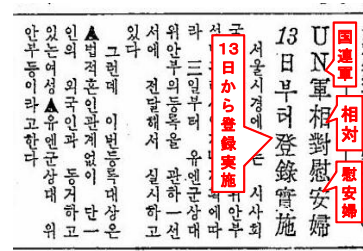 国連軍
相対
慰安婦
UN軍相對慰安婦
13日부터登錄實施
13日から登録実施
서울시경에 는 시사회
국 위안부
에다
라 三일부터 유엔군상대
위안부의등록을 관하一선
서에 전달해서 실시하고
있다
그런데 이번등록대상은
▲법적혼인관계없이 단一
인의 외국인과 동거하고
있는여성▲유엔군상대 위
안부등이라고한다